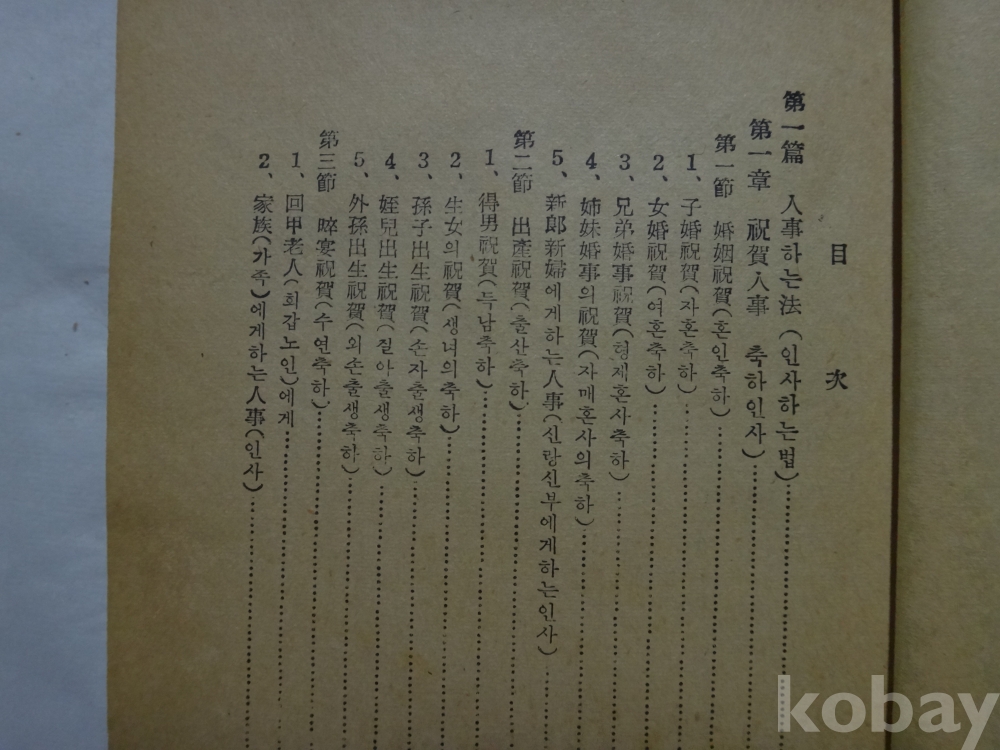 目次
第一篇 人事하는法 (인사하는법)
第一章 祝賀人事 축하인사)
第一節 婚姻祝賀 (혼인축하)
1、子婚祝賀 (자혼축하)
2、女婚祝賀 (여혼축하)
3、兄弟婚事祝賀 (형제혼사축하)
4、姉妹婚事의祝賀 (자매혼사의축하)
5、新郞新婦에게하는人事 (신랑신부에게하는인사)
第二節 出産祝賀 (출산축하)
1、得男祝賀 (득남축하)
2、生女의祝賀 (생녀의축하)
3、孫子出生祝賀 (손자출생축하)
4、姪兒出生祝賀 (질아출생축하)
5、外孫出生祝賀 (외손출생축하)
第三節 晬宴祝賀 (수연축하)
1、回甲老人 (회갑노인)에게
2、家族 (가족)에게하는人事 (인사)
kobay